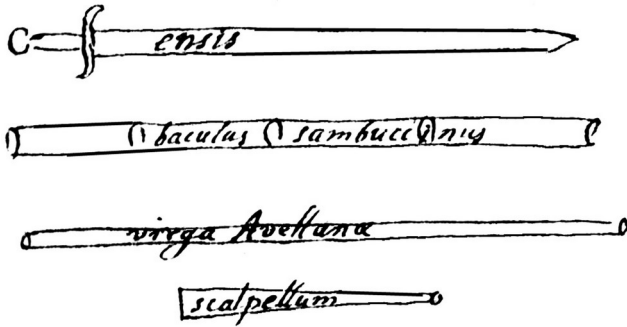 ensis
baculus sambucinus
virga Avellana
scalpellum